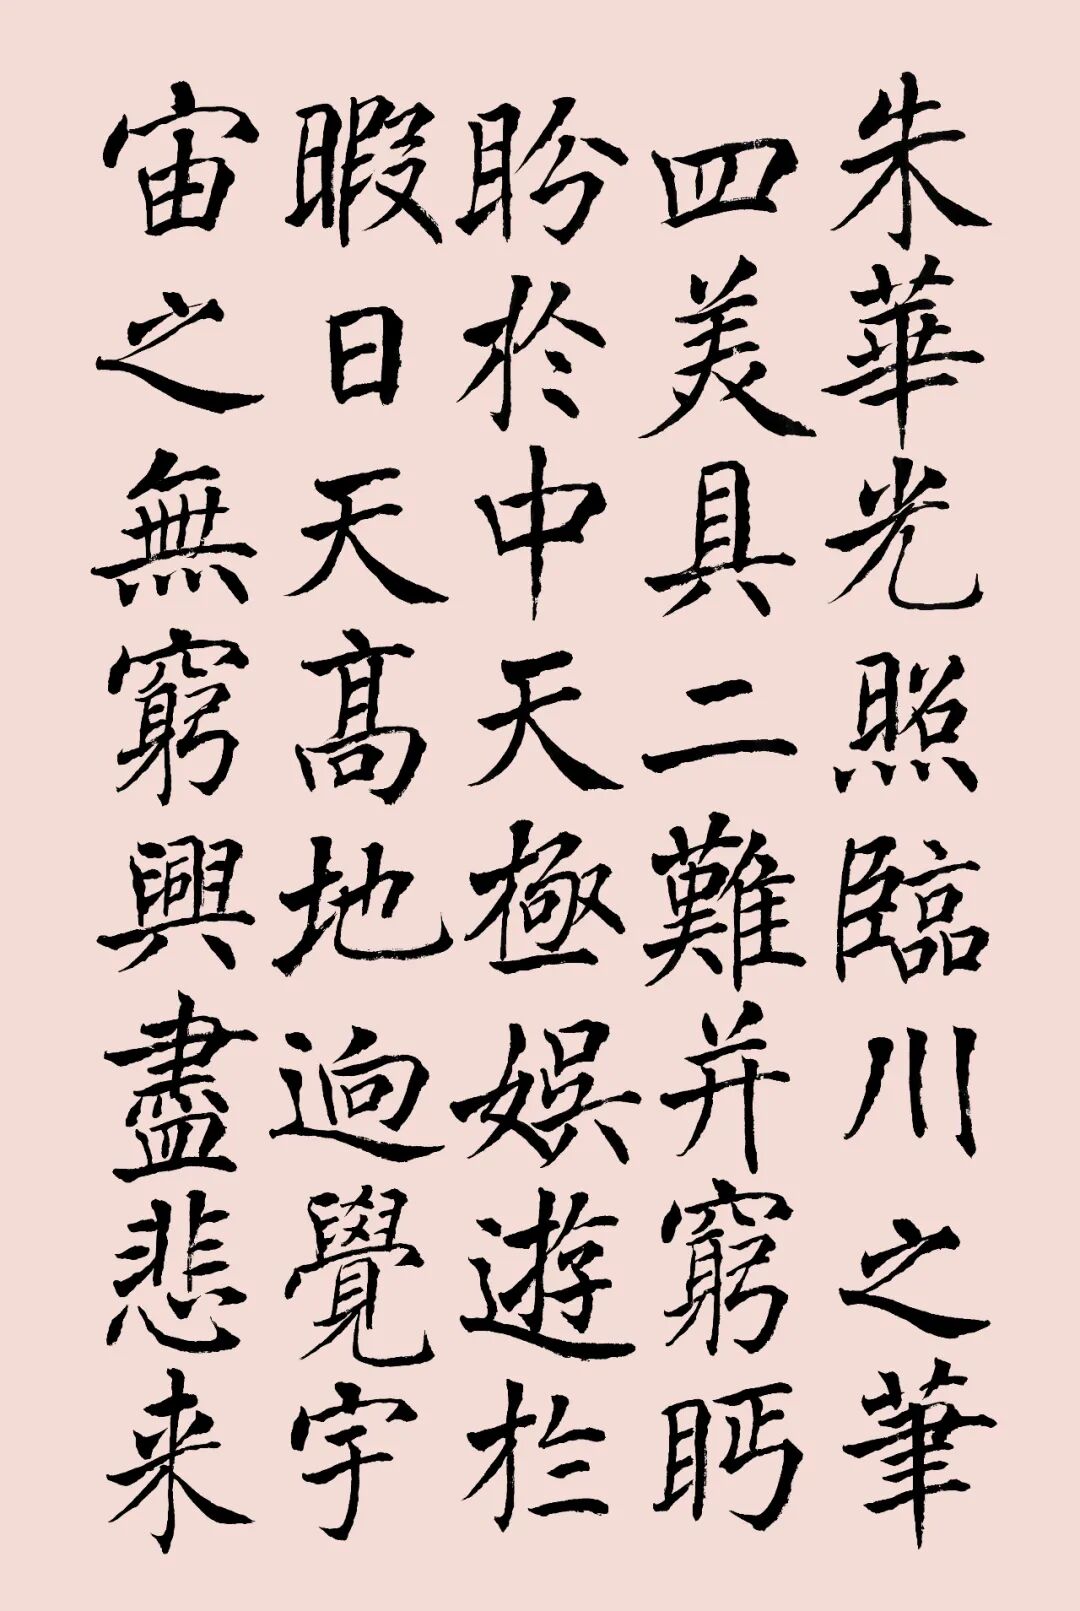 朱華光照臨川之筆
四美具二難并窮眄
盼於中天極娯遊於
暇日天髙地逈覺宇
宙之無窮興盡悲来